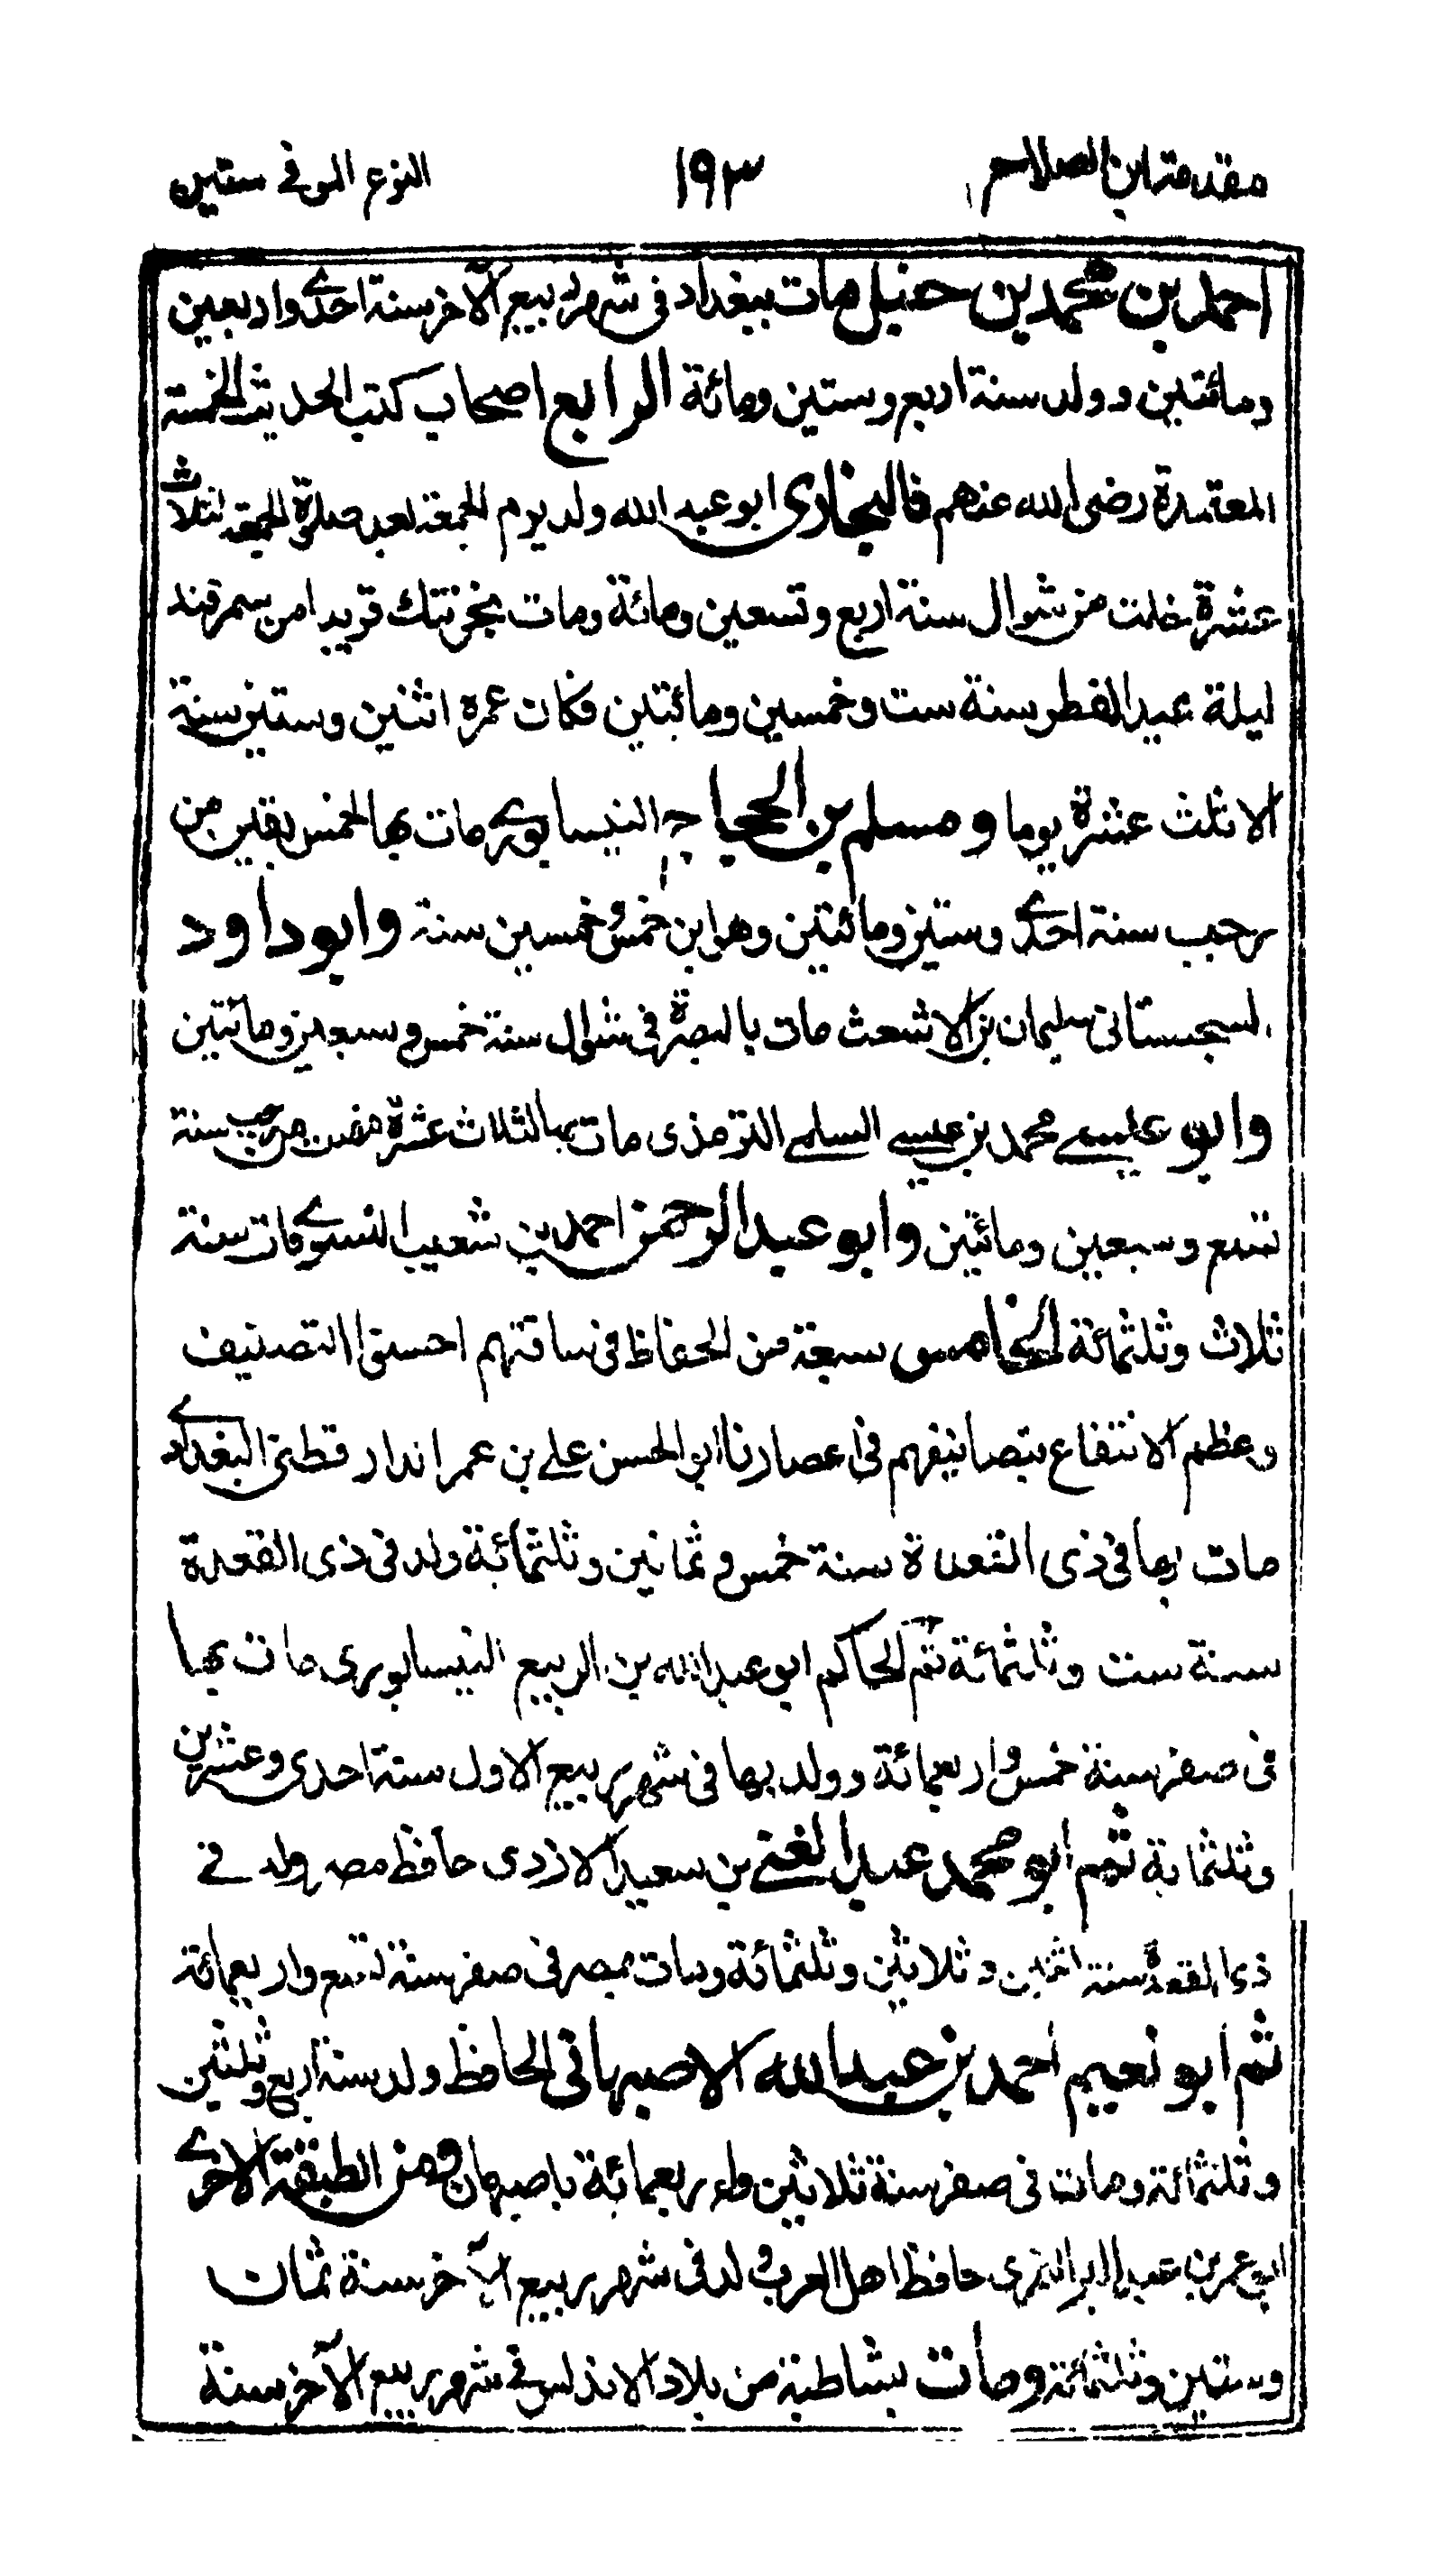 مقدمة ابن الصلاح ١٩٣ النوع الموفي ستين
احمد بن محمد بن حنبل مات ببغداد فى شهر ربيع الآخر سنة احدے واربعين
ومائتين وولد سنة اربع وستين ومائة الرابع اصحاب كتب الحديث الخمسة
المعتمدة رضى الله عنهم فالبخارى ابو عبد الله ولد يوم الجمعة بعد صلوة الجمعة لثلاث
عشرة خلت من شوال سنة اربع وتسعين ومائة ومات بخرتنك قريبا من سمرقند
ليلة عيد الفطر سنة ست وخمسين ومائتين فكان عمره اثنين وستين سنة
الا ثلث عشرة يوما ومسلم بن الحجاج النيسابورے مات بها لخمس بقين من
رجب سنة احدے وستين ومائتين وهو ابن خمس وخمسين سنة وابو داود
السجستانى سليمان بن الاشعث مات بالبصرة فى شوال سنة خمس وسبعين ومائتين
وابو عيسے محمد بن عيسے السلمے الترمذى مات بها لثلاث عشرة مضت من رجب سنة
تسع وسبعين ومائتين وابو عبد الرحمن احمد بن شعيب النسوے مات سنة
ثلاث وثلثمائة الخامس سبعة من الحفاظ فى ساقتهم احسنوا التصنيف
وعظم الانتفاع بتصانيفهم فى اعصارنا ابو الحسن علے بن عمر الدارقطنى البغدادے
مات بها فى ذى القعدة سنة خمس وثمانين وثلثمائة ولد فى ذى القعدة
سنة ست وثلثمائة ثم الحاكم ابو عبد الله بن الربيع النيسابورى مات بها
فى صفر سنة خمس واربعمائة وولد بها فى شهر ربيع الاول سنة احدى وعشرين
وثلثماية ثم ابو محمد عبد الغنے بن سعيد الازدى حافظ مصر ولد فے
ذى القعدة سنة اثنين وثلاثين وثلثمائة ومات بمصر فى صفر سنة تسع واربعمائة
ثم ابو نعيم احمد بن عبد الله الاصبهانى الحافظ ولد سنة اربع وثلثين
وثلثمائة ومات فى صفر سنة ثلاثين واربعمائة باصبهان ومن الطبقة الاخرے
ابو عمر بن عبد البر النمرى حافظ اهل الغرب ولد فى شهر ربيع الآخر سنة ثمان
وستين وثلثمائة ومات بشاطبة من بلاد الاندلس فے شهر ربيع الآخر سنة